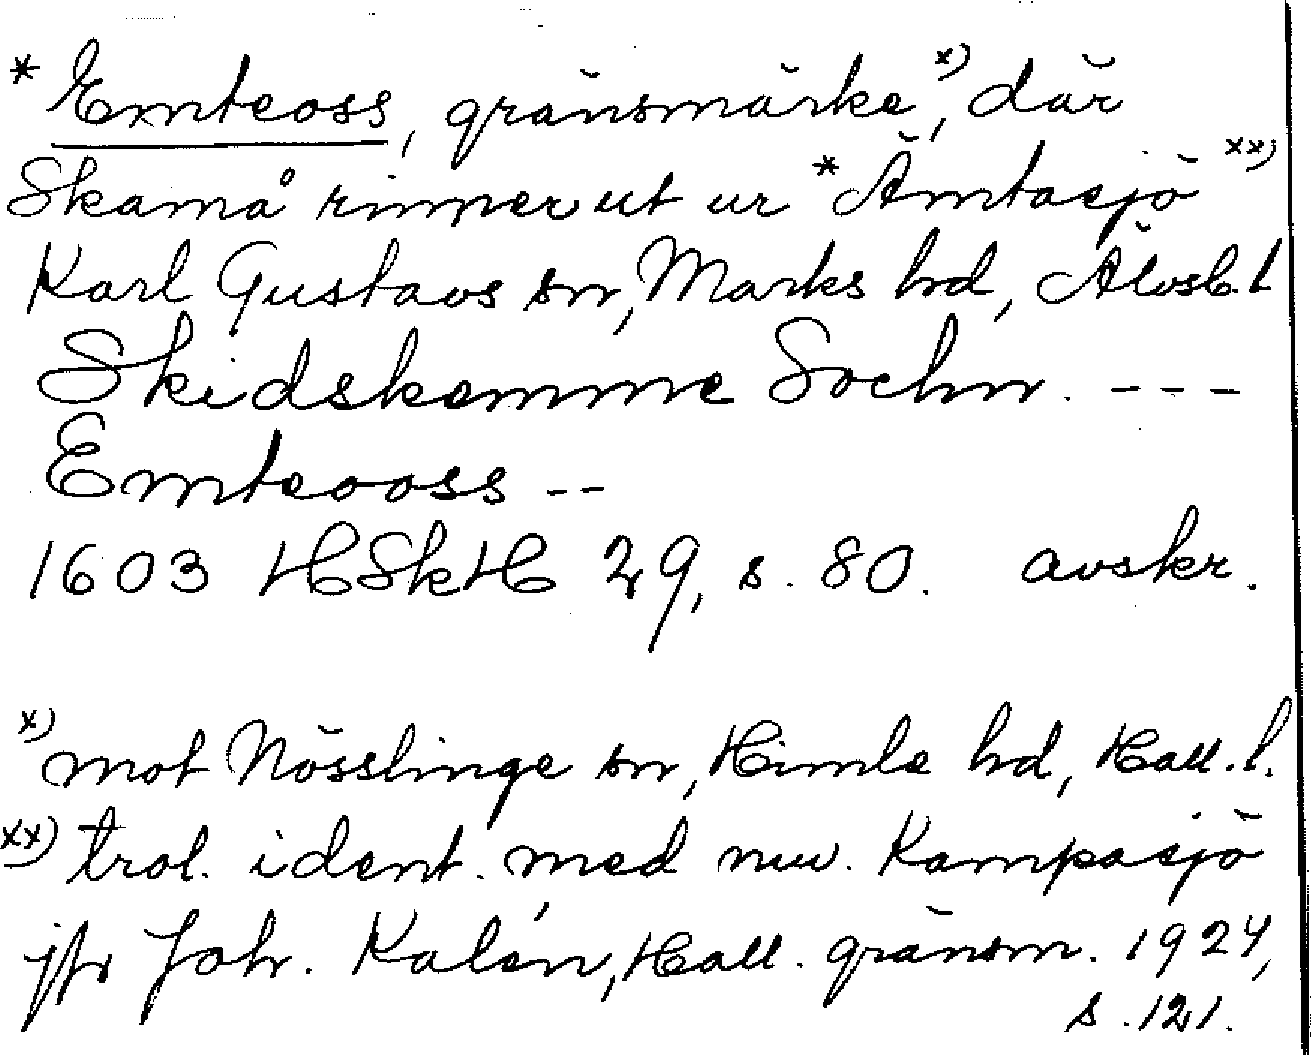 * Emteoss, gränsmärke x), där
Skamå rinner ut ur *Ämtasjö xx)
Karl Gustavs sn, Marks hd, Älvsb.l
Skidskamme Sochn. ---
Emteooss --
1603 HSkH 29, s. 80. avskr.
x) mot Nösslinge sn, Himle hd, Hall.l.
xx) trol. ident. med nuv. Kampasjö
jfr Joh. Kalén, Hall. gränsm. 1924,
s. 121.